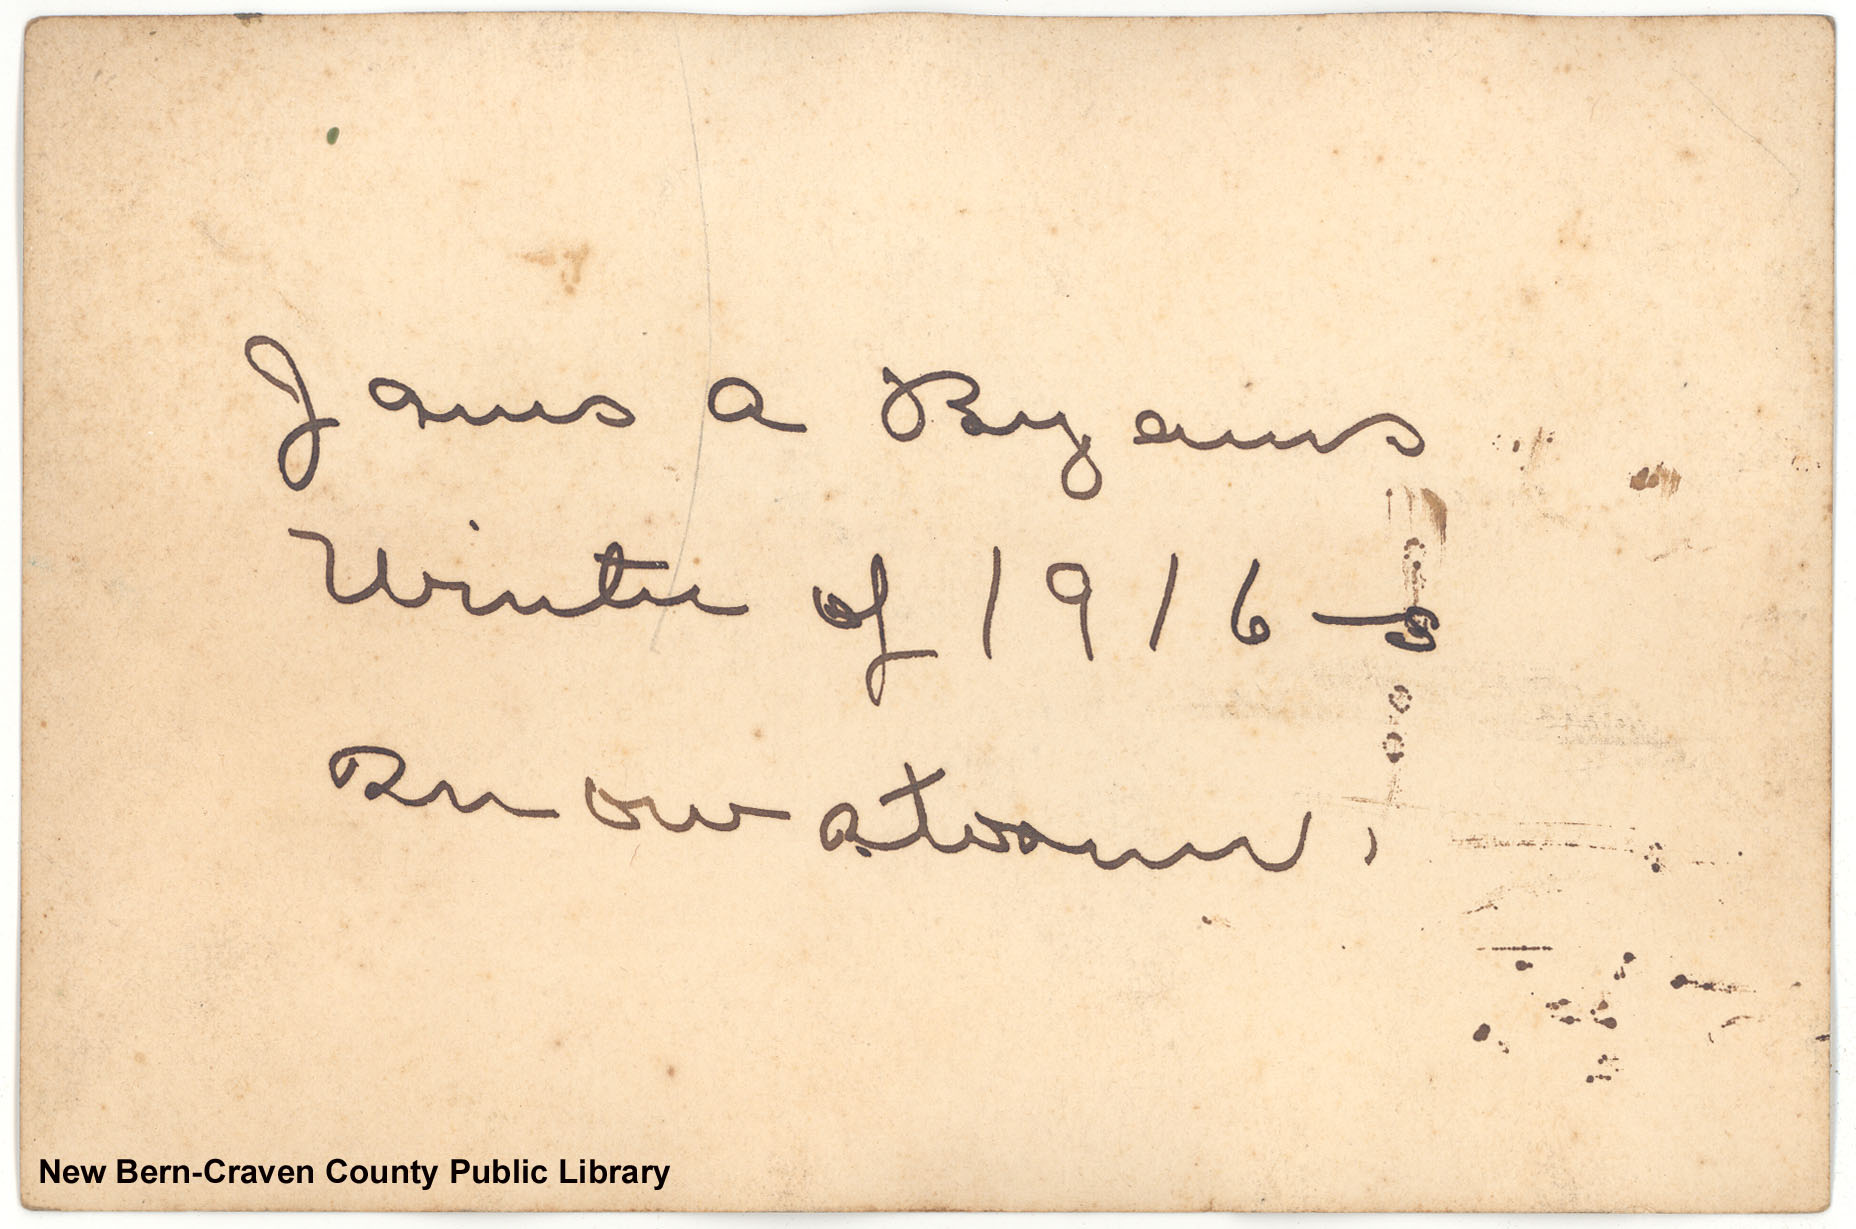 James A Bryans
Winter of 1916-
Snow storm.
New Bern-Craven County Public Library